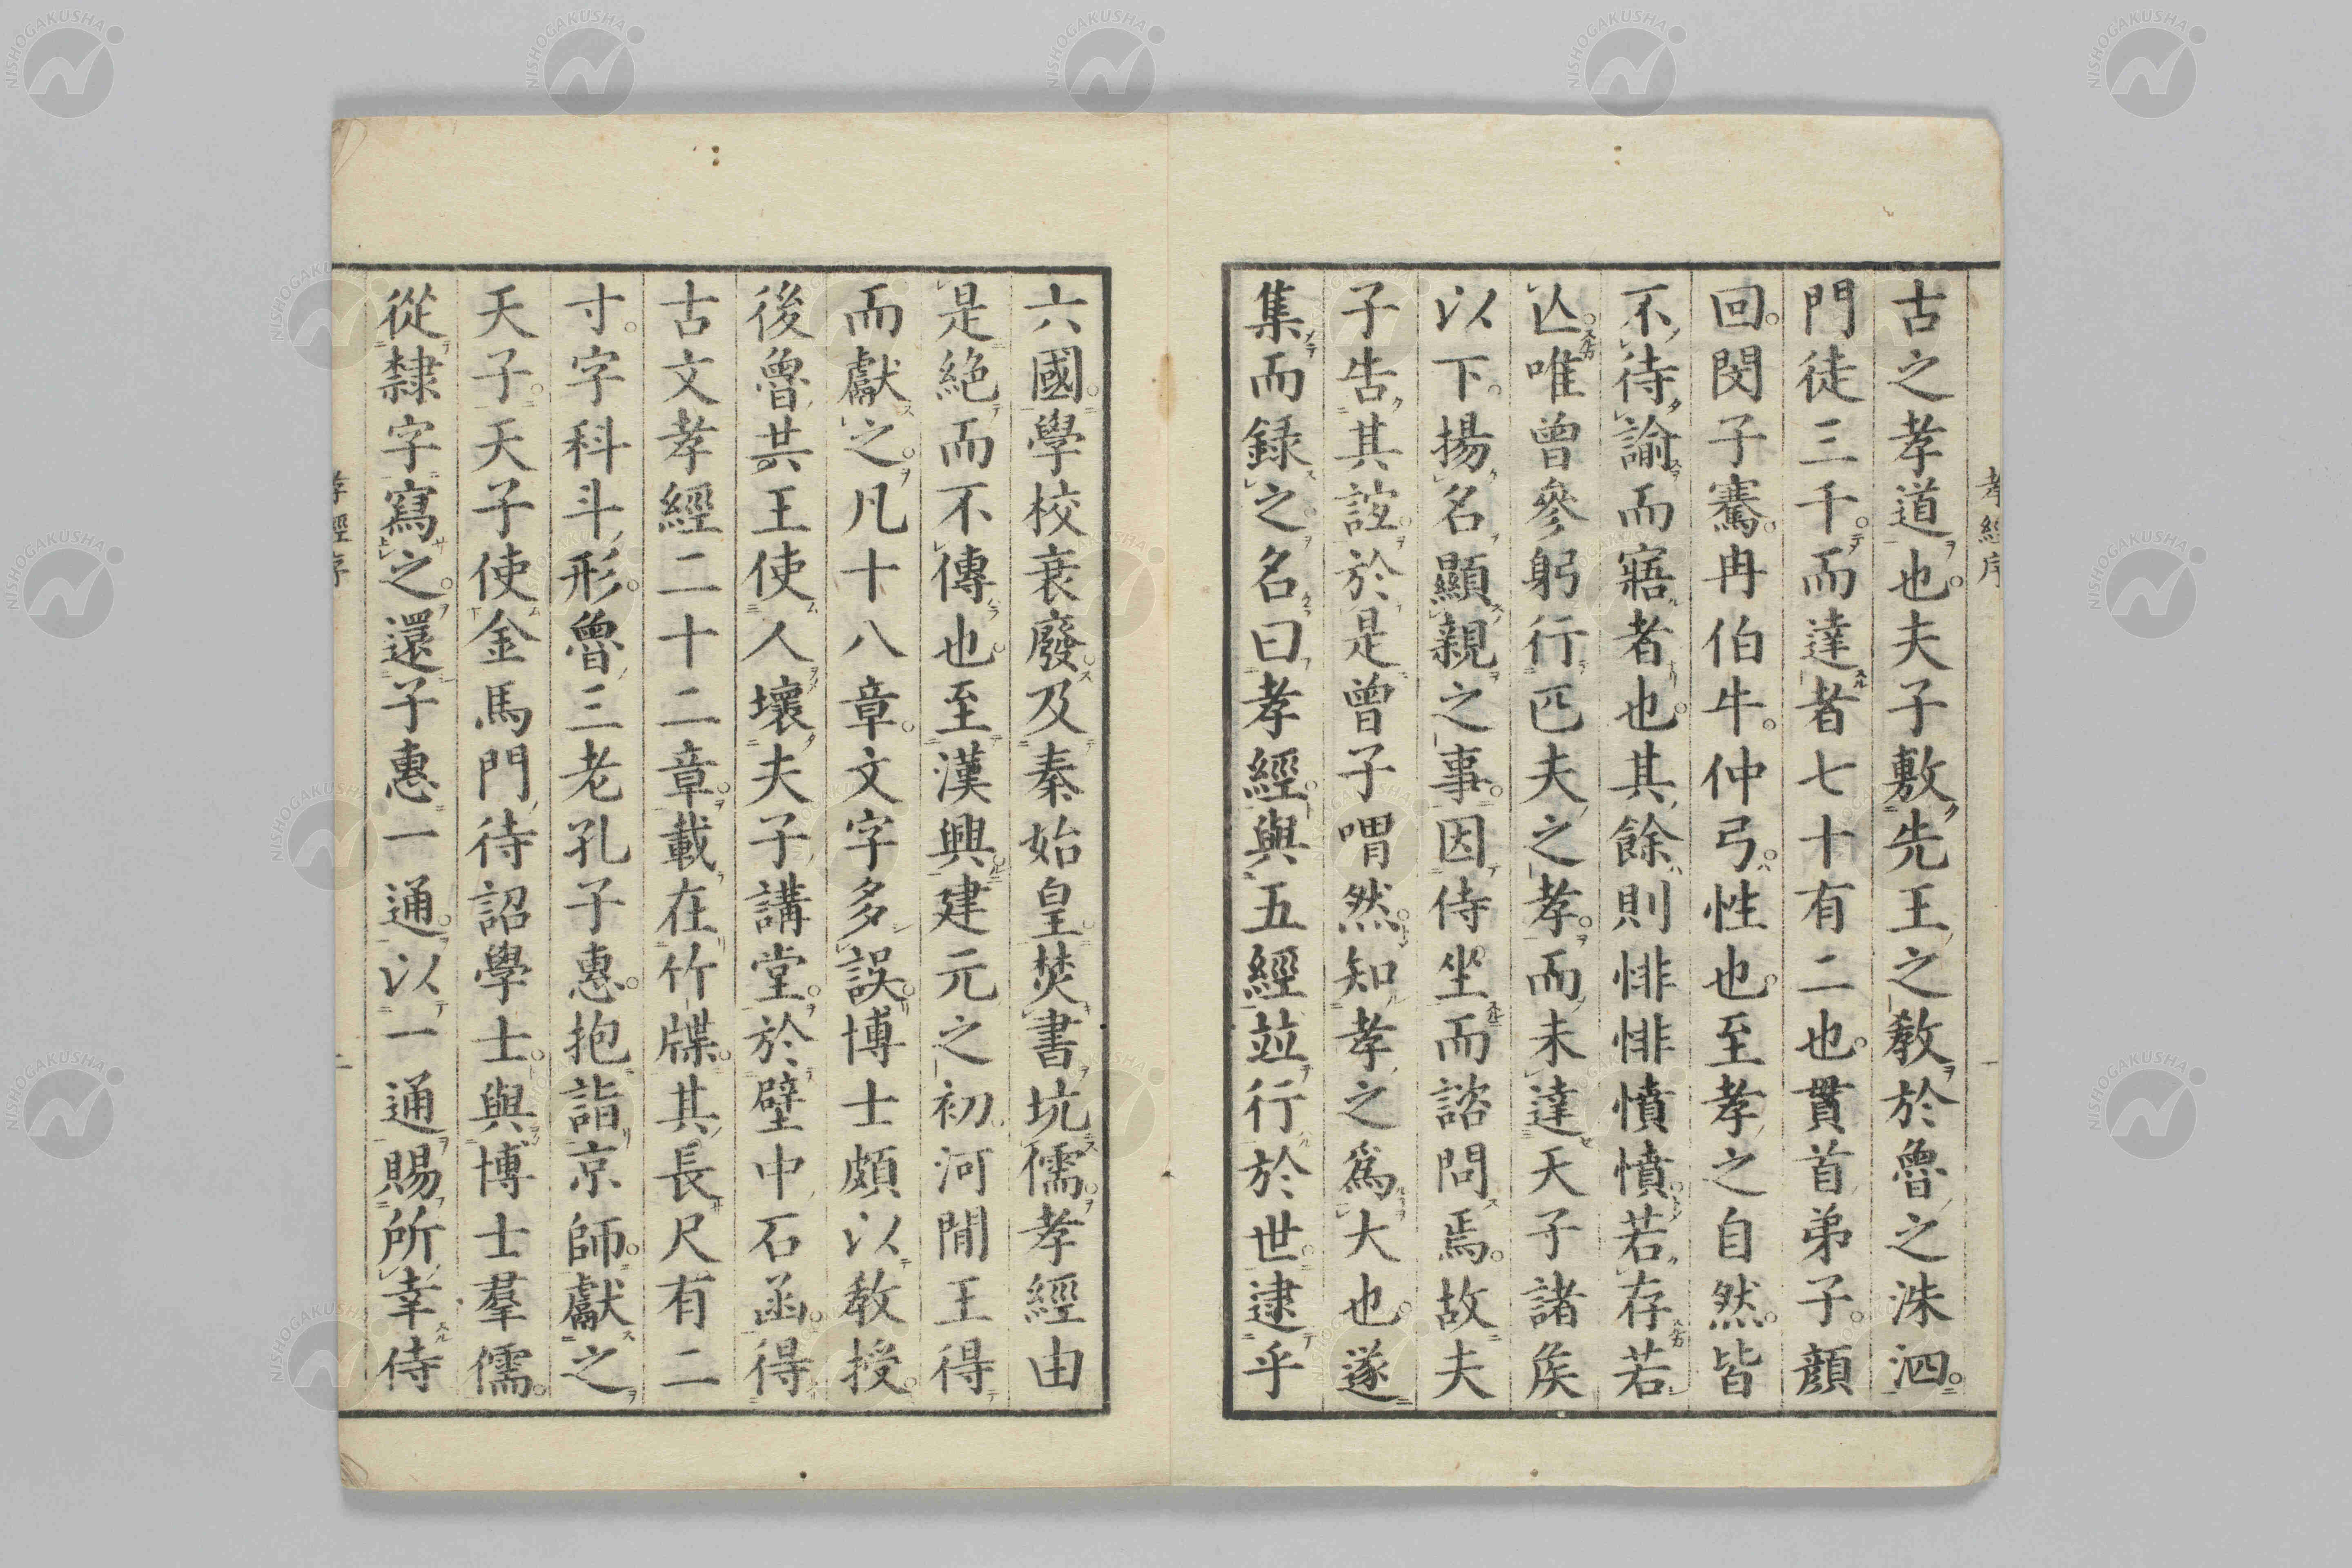 古之孝道也夫子敷先王之敎於魯之洙泗
門徒三千而達者七十有二也貫首弟子顔
回閔子騫冉伯牛仲弓性也至孝之自然皆
不待諭而寤者也其餘則悱悱憤憤若存若
亾唯曾參躬行匹夫之孝而未達天子諸矦
以下揚名顯親之事因侍坐而諮問焉故夫
子告其誼於是曾子喟然知孝之爲大也遂
集而録之名曰孝經與五經竝行於世逮乎
六國學校衰廢及秦始皇焚書坑儒孝經由
是絶而不傳也至漢興建元之初河閒王得
而獻之凡十八章文字多誤博士頗以敎授
後魯共王使人壞夫子講堂於壁中石函得
古文孝經二十二章載在竹牒其長尺有二
寸字科斗形魯三老孔子惠抱詣京師獻之
天子天子使金馬門待詔學士與博士羣儒
從隸字寫之還子惠一通以一通賜所幸侍
孝經序 一
孝經序 二
NISHOGAKUSHA